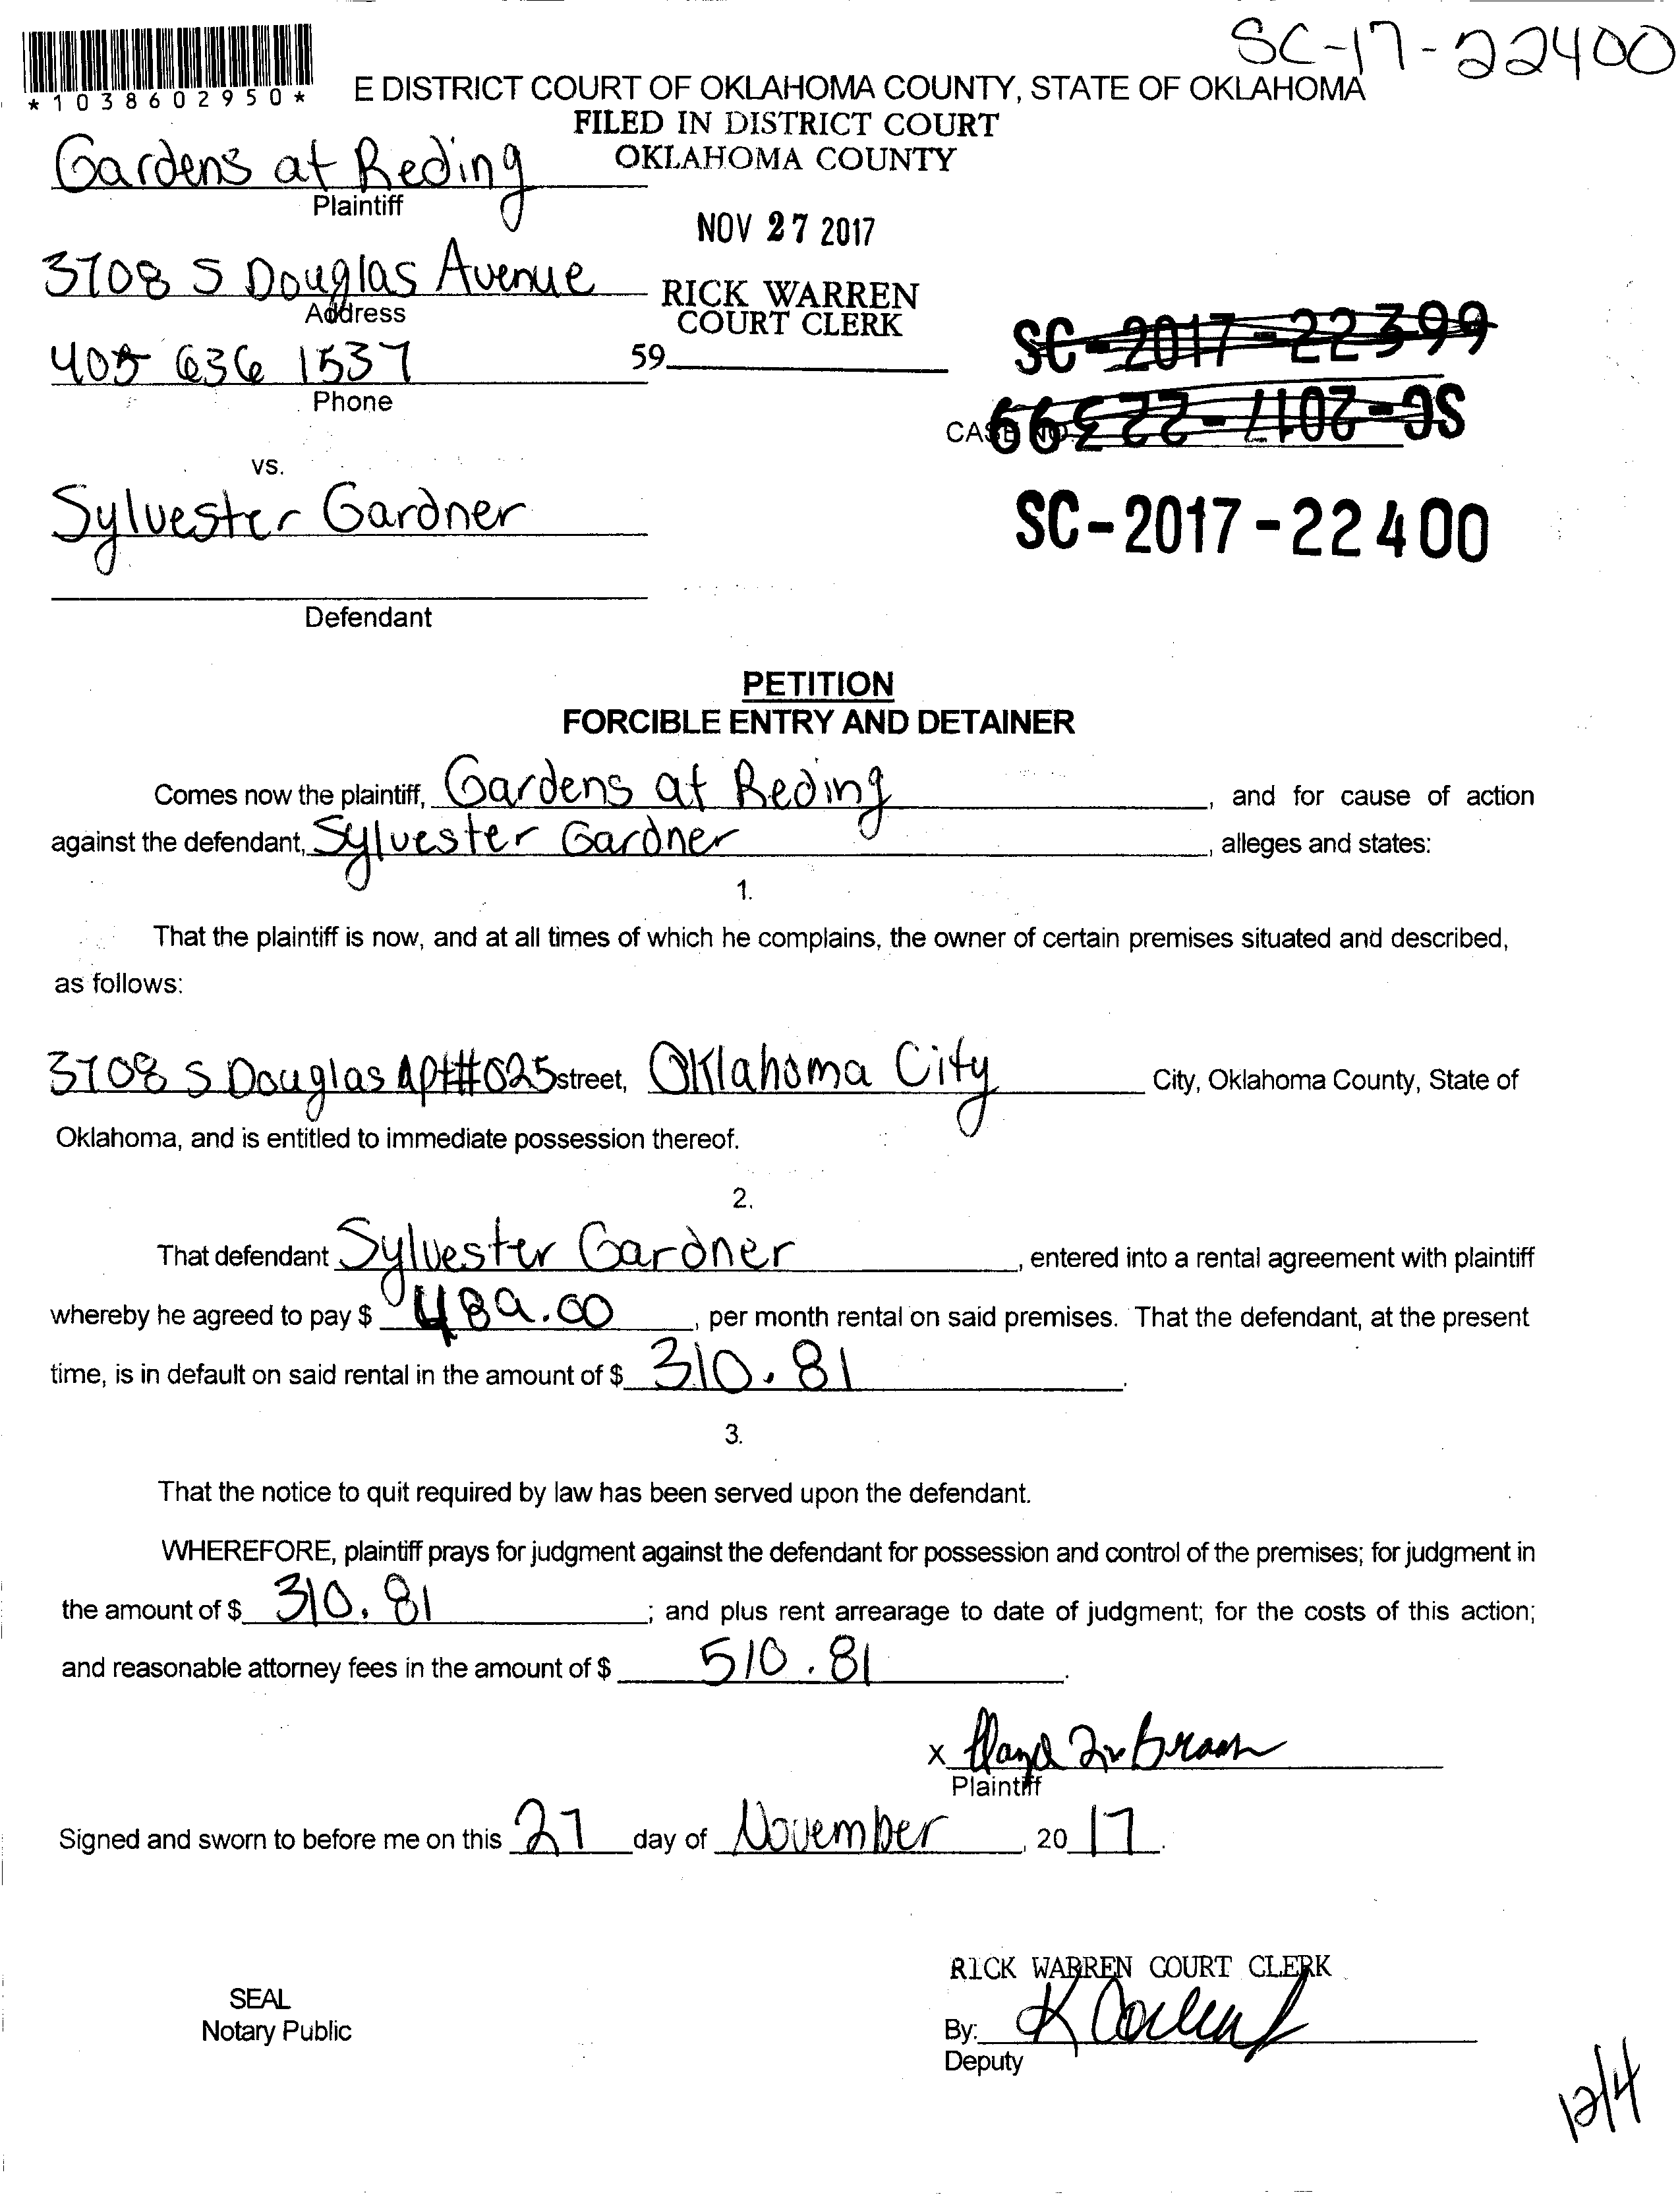 SC-17-22400
*1038602950*
E DISTRICT COURT OF OKLAHOMA COUNTY, STATE OF OKLAHOMA
FILED IN DISTRICT COURT
OKLAHOMA COUNTY
Gardens at Reding
Plaintiff
NOV 27 2017
3708 S Douglas Avenue
Address
RICK WARREN
COURT CLERK
405 636 1537
Phone
59
SC-2017-22399
CASE NO.
SC-2017-22399
vs.
Sylvester Gardner
SC-2017-22400
Defendant
PETITION
FORCIBLE ENTRY AND DETAINER
Comes now the plaintiff, Gardens at Reding, and for cause of action
against the defendant, Sylvester Gardner, alleges and states:
1.
That the plaintiff is now, and at all times of which he complains, the owner of certain premises situated and described,
as follows:
3708 S Douglas Apt#025 street, Oklahoma City City, Oklahoma County, State of
Oklahoma, and is entitled to immediate possession thereof.
2.
That defendant Sylvester Gardner, entered into a rental agreement with plaintiff
whereby he agreed to pay $ 489.00, per month rental on said premises. That the defendant, at the present
time, is in default on said rental in the amount of $ 310.81.
3.
That the notice to quit required by law has been served upon the defendant.
WHEREFORE, plaintiff prays for judgment against the defendant for possession and control of the premises; for judgment in
the amount of $ 310.81; and plus rent arrearage to date of judgment; for the costs of this action;
and reasonable attorney fees in the amount of $ 510.81.
X
Plaintiff
Signed and sworn to before me on this 27 day of November, 2017.
RICK WARREN COURT CLERK
SEAL
Notary Public
By: K
Deputy
12/4